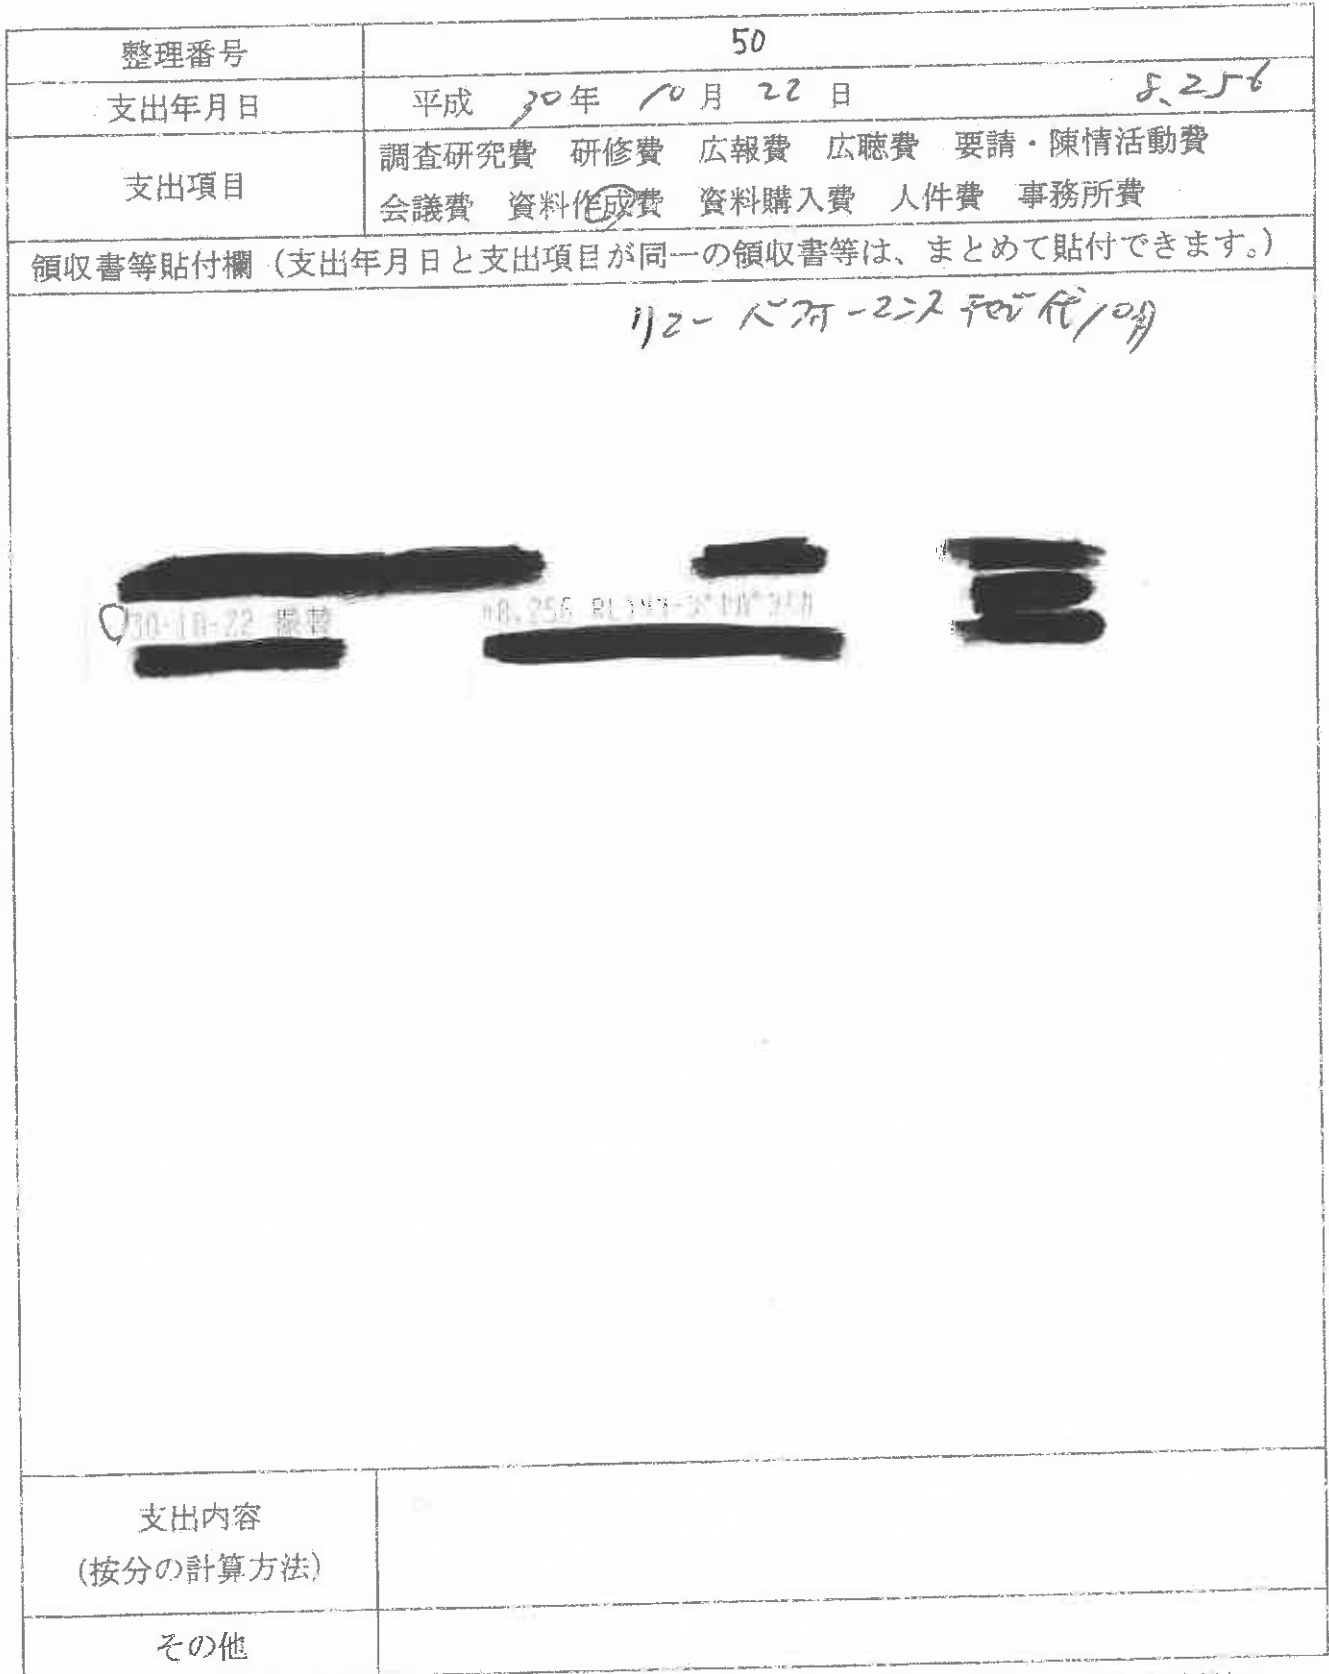 整理番号 50
支出年月日 平成 30年 10月 22日 8,256
支出項目
調査研究費 研修費 広報費 広聴費 要請・陳情活動費
会議費 資料作成費 資料購入費 人件費 事務所費
領収書等貼付欄（支出年月日と支出項目が同一の領収書等は、まとめて貼付できます。）
リコー パフォーマンス 代10月
30-10-22 振替 *8,256
支出内容
(按分の計算方法)
その他